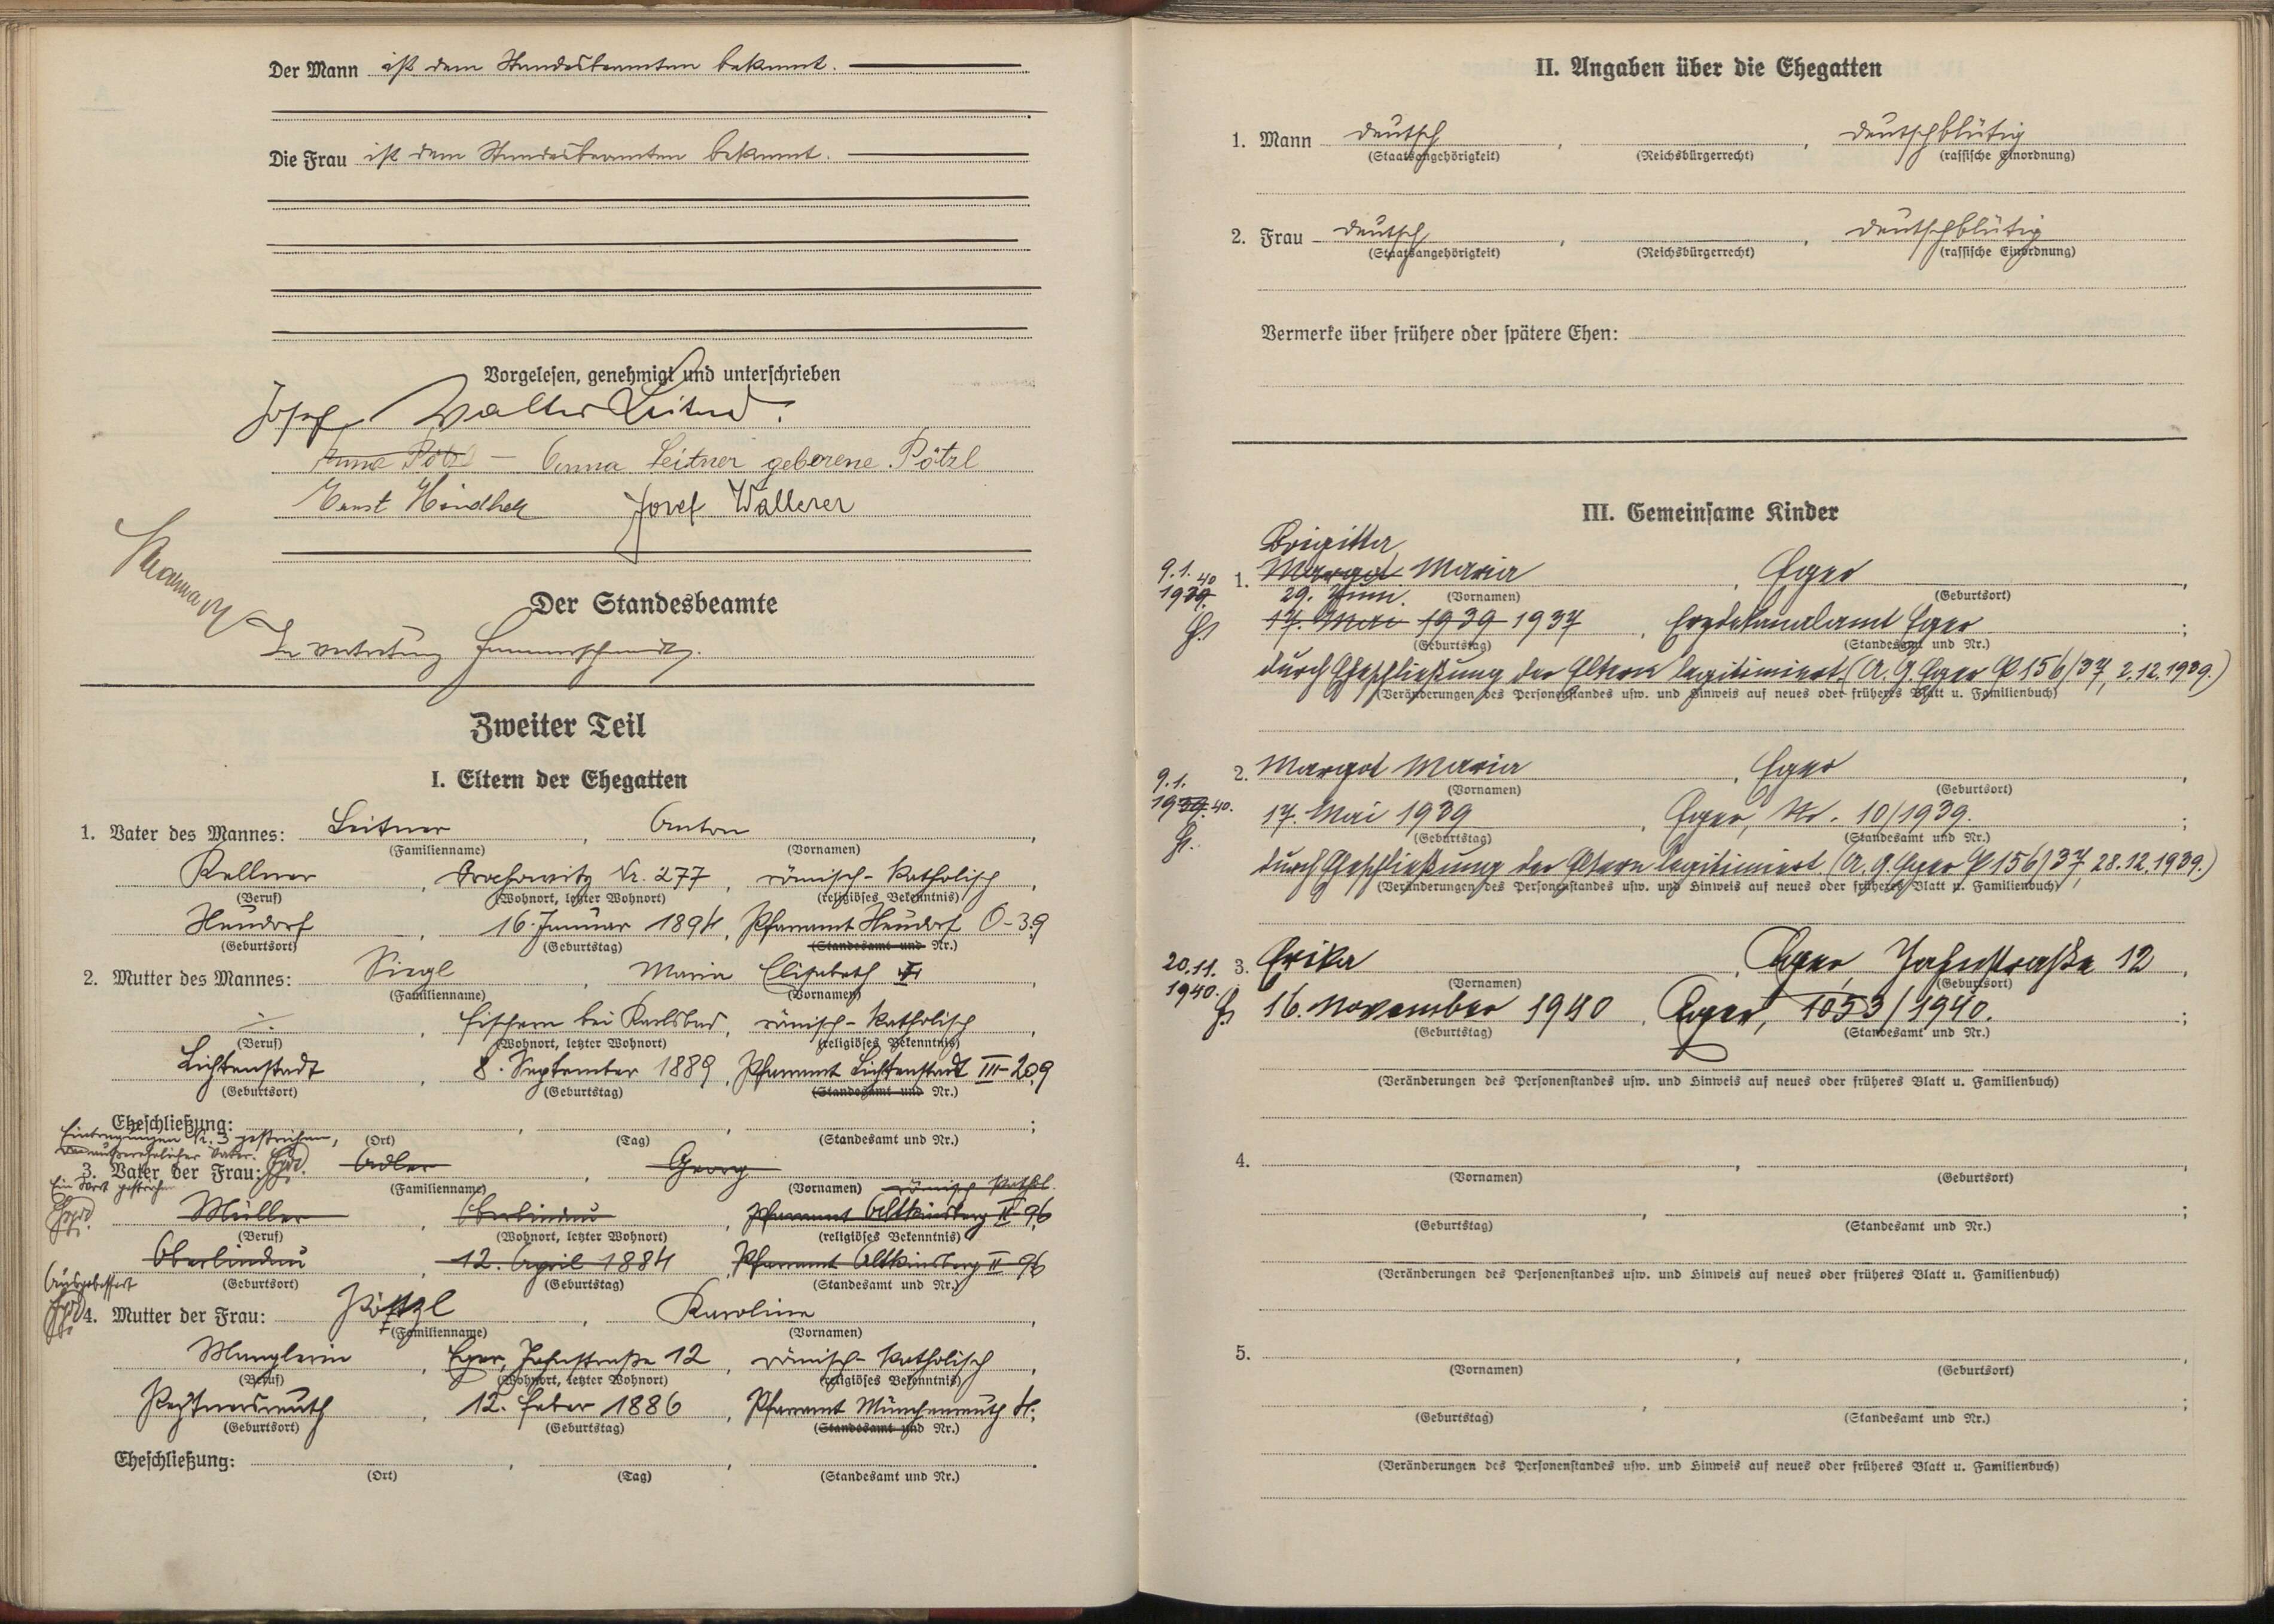 Der Mann ist dem Standesbeamten bekannt.
Die Frau ist dem Standesbeamten bekannt.
Vorgelesen, genehmigt und unterschrieben
Josef Walter Leitner
Anna Pötzl – Anna Leitner geborene Pötzl
Ernst Josef Wallerer
Der Standesbeamte
In Vertretung
Zweiter Teil
I. Eltern der Ehegatten
1. Vater des Mannes: Leitner, Anton,
(Familienname) (Vornamen)
Kellner, Nr. 277, römisch-katholisch,
(Beruf) (Wohnort, letzter Wohnort) (religiöses Bekenntnis)
Neudorf, 16. Januar 1894, Pfarramt Neudorf O-39
(Geburtsort) (Geburtstag) (Standesamt und Nr.)
2. Mutter des Mannes: Siegl, Maria Elisabeth,
(Familienname) (Vornamen)
, Fischern bei Karlsbad, römisch-katholisch,
(Beruf) (Wohnort, letzter Wohnort) (religiöses Bekenntnis)
Lichtenstadt, 8. September 1889, Pfarramt Lichtenstadt III-209
(Geburtsort) (Geburtstag) (Standesamt und Nr.)
Eheschließung:
Eintragungen Nr. 3 gestrichen,
(Ort) (Tag) (Standesamt und Nr.)
außerehelicher Vater.
3. Vater der Frau: Adler, Georg
Ein Wort gestrichen
(Familienname) (Vornamen) römisch kathol.
Müller, Oberlindau, Pfarramt Altkinsberg II 96
(Beruf) (Wohnort, letzter Wohnort) (religiöses Bekenntnis)
Oberlindau, 12. April 1884, Pfarramt Altkinsberg II 96
Ausgebessert
(Geburtsort) (Geburtstag) (Standesamt und Nr.)
4. Mutter der Frau: Pötzl, Karoline,
(Familienname) (Vornamen)
Manglerin, Eger, Jahnstraße 12, römisch-katholisch,
(Beruf) (Wohnort, letzter Wohnort) (religiöses Bekenntnis)
, 12. Feber 1886, Pfarramt Münchenreuth
(Geburtsort) (Geburtstag) (Standesamt und Nr.)
Eheschließung:
(Ort) (Tag) (Standesamt und Nr.)
II. Angaben über die Ehegatten
1. Mann deutsch, , deutschblütig
(Staatsangehörigkeit) (Reichsbürgerrecht) (rassische Einordnung)
2. Frau deutsch, , deutschblütig
(Staatsangehörigkeit) (Reichsbürgerrecht) (rassische Einordnung)
Vermerke über frühere oder spätere Ehen:
III. Gemeinsame Kinder
Brigitta
9.1. 40 1. Margot Maria, Eger,
1939. 29. Juni. (Vornamen) (Geburtsort)
17. Mai 1939 1937, Erzdekanalamt Eger;
(Geburtstag) (Standesamt und Nr.)
durch Eheschließung der Eltern legitimiert. (A. G. Eger P 156/37, 2.12.1939.)
(Veränderungen des Personenstandes usw. und Hinweis auf neues oder früheres Blatt u. Familienbuch)
9.1. 2. Margot Maria, Eger,
(Vornamen) (Geburtsort)
1939. 40. 17. Mai 1939, Eger, Nr. 10/1939.;
(Geburtstag) (Standesamt und Nr.)
durch Eheschließung der Eltern legitimiert. (A. G. Eger P 156/37, 28.12.1939.)
(Veränderungen des Personenstandes usw. und Hinweis auf neues oder früheres Blatt u. Familienbuch)
20.11. 3. Erika, Eger, Jahnstraße 12,
1940. (Vornamen) (Geburtsort)
16. November 1940, Eger, 1053/1940.;
(Geburtstag) (Standesamt und Nr.)
(Veränderungen des Personenstandes usw. und Hinweis auf neues oder früheres Blatt u. Familienbuch)
4.
(Vornamen) (Geburtsort)
(Geburtstag) (Standesamt und Nr.)
(Veränderungen des Personenstandes usw. und Hinweis auf neues oder früheres Blatt u. Familienbuch)
5.
(Vornamen) (Geburtsort)
(Geburtstag) (Standesamt und Nr.)
(Veränderungen des Personenstandes usw. und Hinweis auf neues oder früheres Blatt u. Familienbuch)